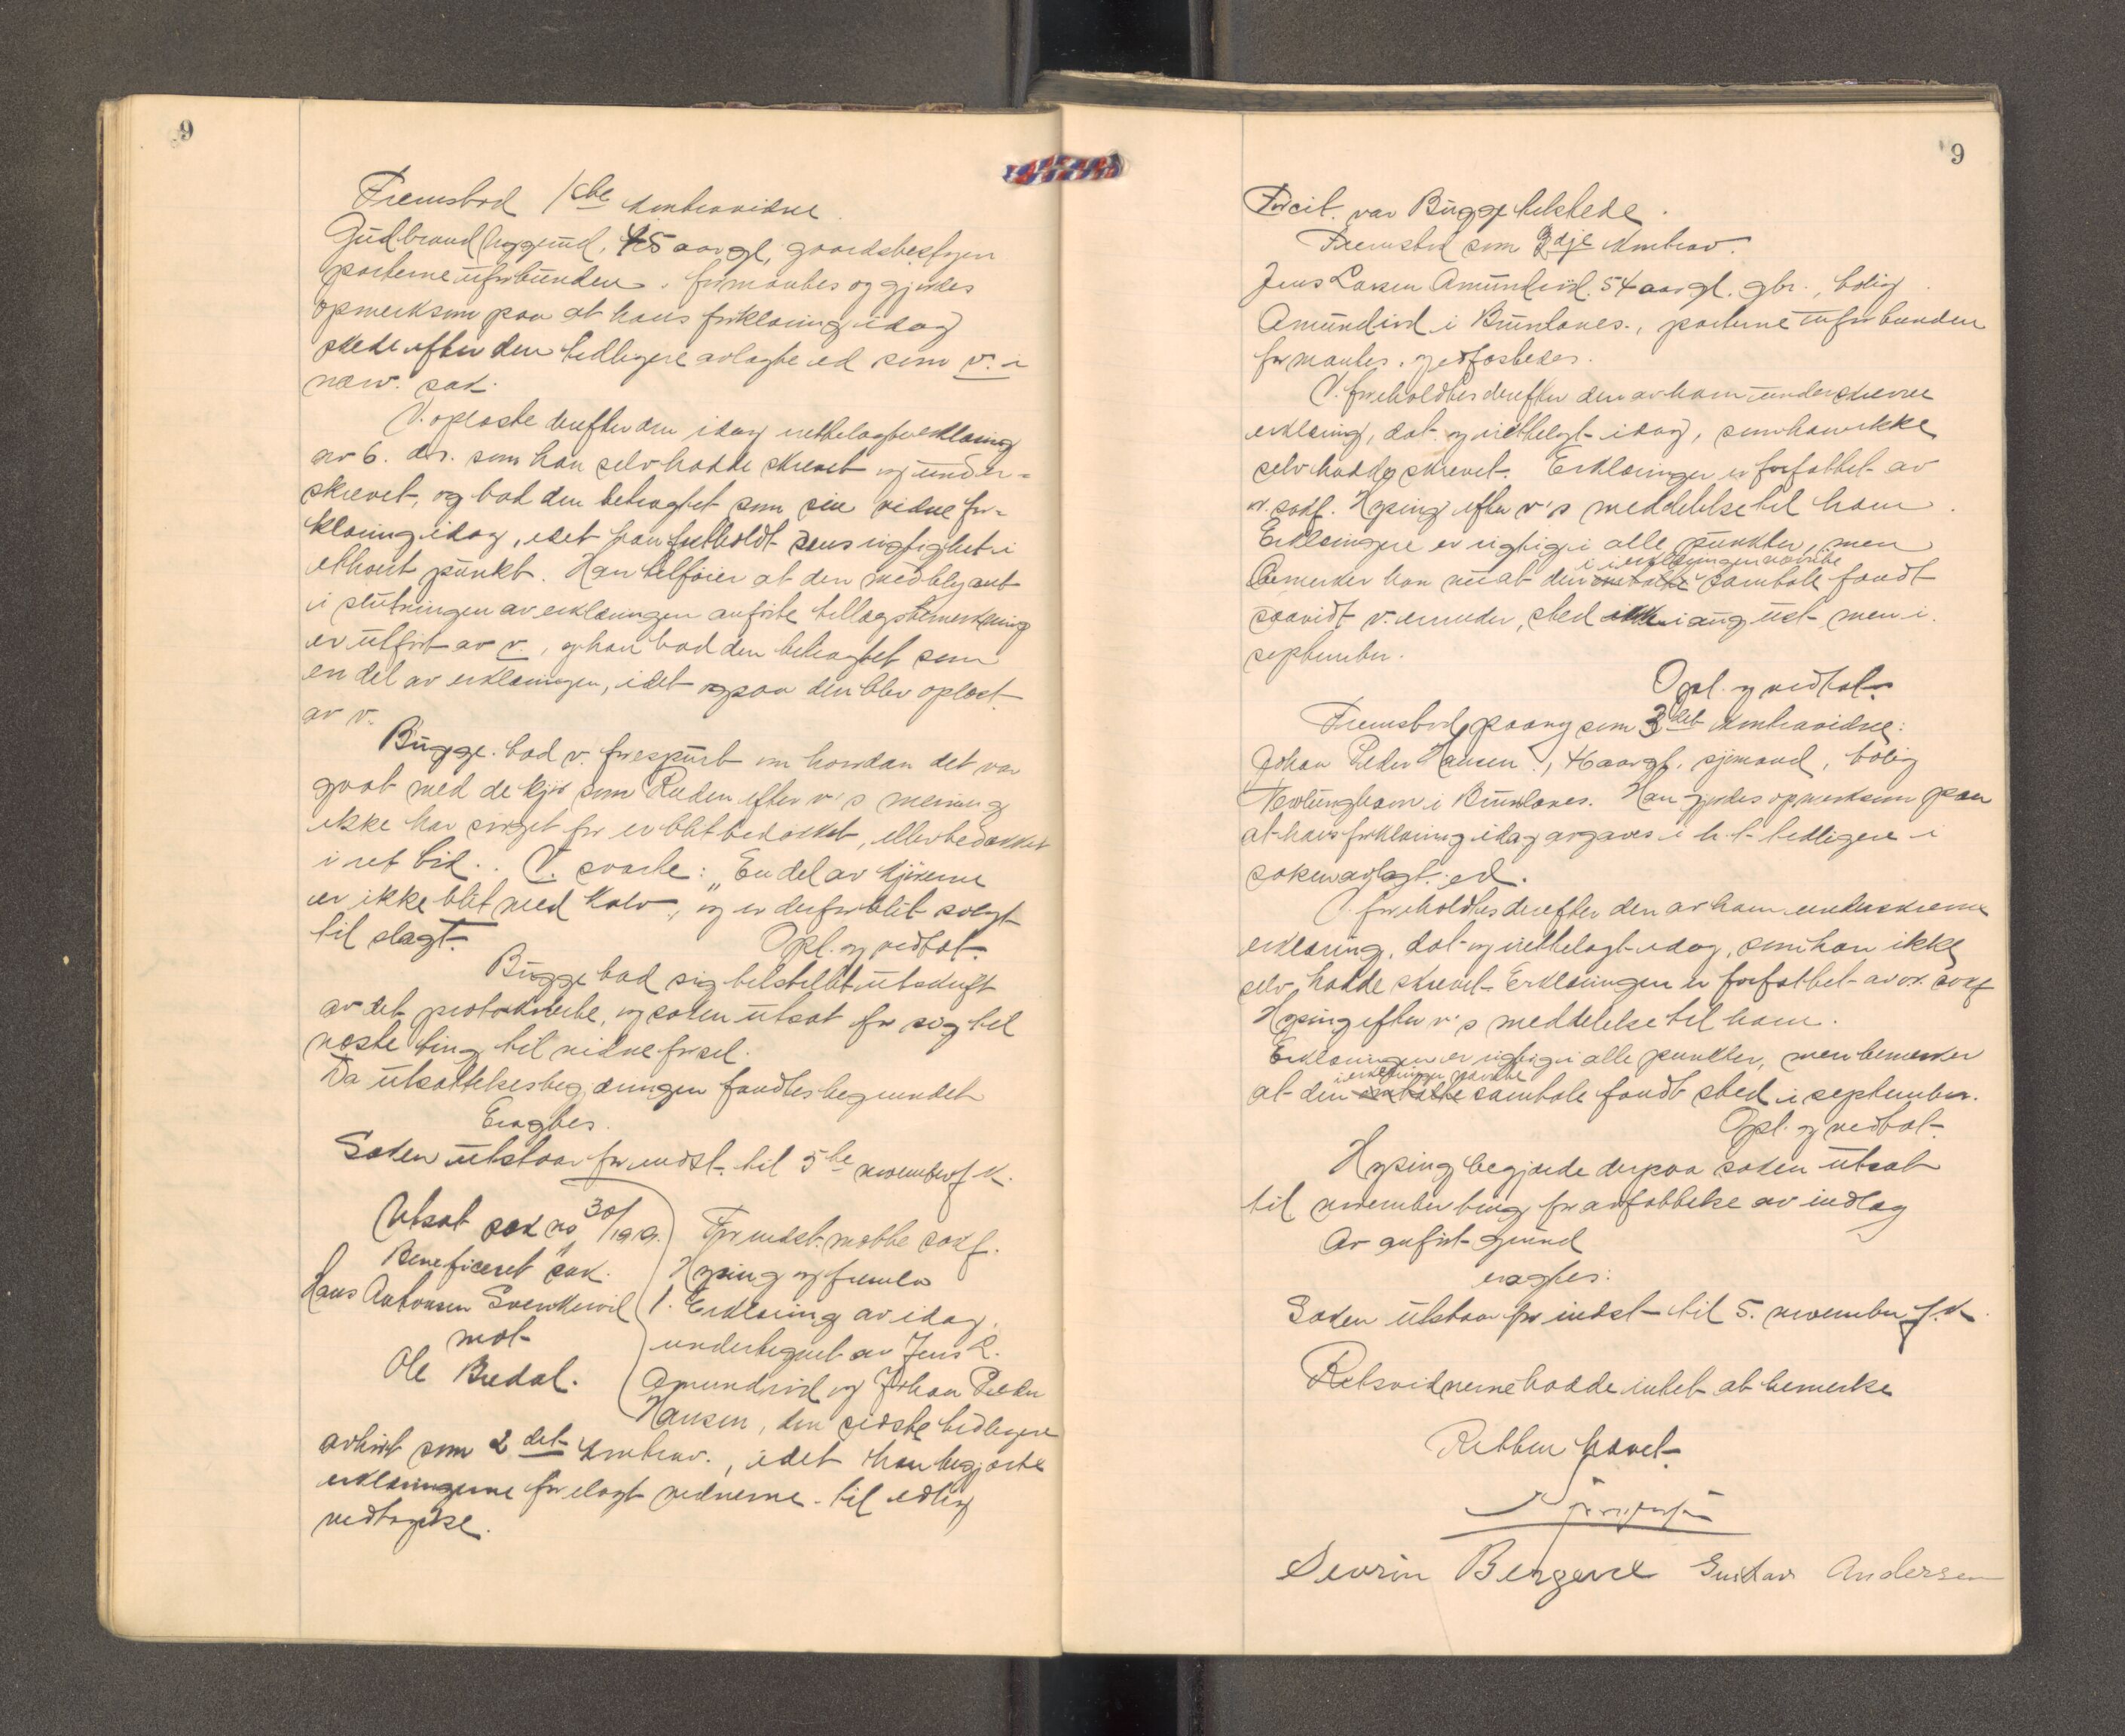 9
Fremstod 1ste kontravidne.
Gudbrand Hyggerud, 45 aar gl., gaardsbestyrer
parterne uforbunden. formantes og gjordes
opmerksom paa at hans forklaring idag
skede efter den tidligere avlagte ed som v. i
nærv. sak.
V. oplæste derefter den idag retbelagte erklæring
av 6. ds. som han selv hadde skrevet og under-
skrevet, og bad den betragtet som sin vidnefor-
klaring idag, idet han fastholdt dens rigtighet i
ethvert punkt. Han tilføier at den med blyant
i slutningen av erklæringen anførte tillægsbemerkning
er utført av v., og han bad den betragtet som
en del av erklæringen, idet ogsaa den blev oplæst
av v.
Bugge bad v. forespurt om hvordan det var
gaat med de kjør som Reden efter v's mening
ikke har sørget for er blit bedækket, eller bedækket
i ret tid. V. svarte: „En del av kjørene
er ikke blit med kalv, og er derfor blit solgt
til slagt.
Opl. og vedtat.
Bugge bad sig tilstillet utskrift
av det protokollerte, og saken utsat for sig til
næste ting til vidneførsel.
Da utsættelsesbegjæringen fandtes begrundet
Eragtes.
Saken utstaar forundst. til 5te november f. k.
Utsat sak no 30/1919.
Beneficeret sak.
Hans Antonsen Svenkerud
mot
Ole Bredal.
For indst. møtte sakf.
Hysing og fremla
1. Erklæring av idag,
undertegnet av Jens L.
Amundrød og Johan Peder
Hansen, den sidste tidligere
avhørt som 2det kontrav., idet han begjærte
erklæringerne forelagt vidnerne til edlig
vedtagelse.
9
For cit. var Bugge tilstede.
Fremstod som 3dje kontrav.
Jens Larsen Amundrød. 54 aar gl. gbr., bolig
Amundrød i Brunlanes., parterne uforbunden
formantes, og edfæstedes.
V. foreholdtes derefter den av ham underskrevne
erklæring, dat. og retbelagt idag, som han ikke
selv hadde skrevet. Erklæringen er forfattet av
o. sakf. Hysing efter v's meddelelse til ham.
Erklæringen er rigtig i alle punkter, men
i erklæringen nævnte
bemerker han nu at den omtalte samtale fandt
saavidt v. erindrer, sted ikke i august men i
september.
Opl. og vedtat.
Fremstod paany som 2det kontravidne:
Johan Peder Hansen, aar gl. sjømand, bolig
Nevlunghavn i Brunlanes. Han gjordes opmerksom paa
at hans forklaring idag avgaves i h. t. tidligere i
saken avlagt ed.
V. foreholdtes derefter den av ham underskrevne
erklæring, dat. og retbelagt idag, som han ikke
selv hadde skrevet. Erklæringen er forfattet av o. sakf.
Hysing efter v's meddelelse til ham.
Erklæringen er rigtig i alle punkter, men bemerker
i erklæringen nævnte
at den omtalte samtale fandt sted i september.
Opl. og vedtat.
Hysing begjærde derpaa saken utsat
til november ting for avfattelse av indlæg
Av anført grund
eragtes:
Saken utstaar for indst. til 5. november f. k.
Retsvidnerne hadde intet at bemerke
Retten hævet.
Sevrin Bergene Gustav Andersen